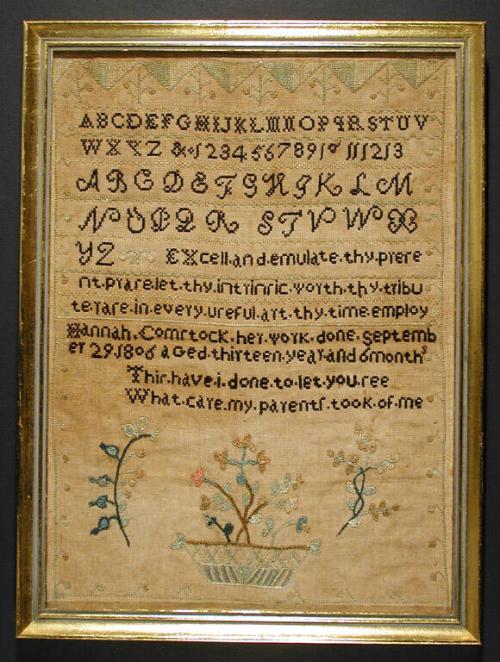 ABCDEFGHIJKLMNOPQRSTUV
WXYZ &·1234567891011 1213
ABCDEFGHIJKLM
NOPQR STVWX
YZ EXcell.and.emulate.thy.preſe
nt.praiſe.let.thy.intrinſic.worth.thy.tribu
te.raiſe.in.every.uſeful.art.thy.time.employ
Hannah.Comſtock.her.work.done.Septemb
er 29.1806 aged.thirteen.year.and 6 months
Thiſ.have.i.done.to.let.you.ſee
What.care.my.parentſ.took.of.me